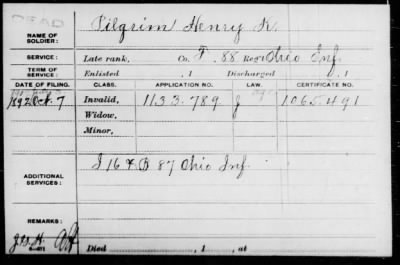 DEAD
NAME OF SOLDIER: Pilgrim Henry K.
SERVICE: Late rank, Co. F, 88 Reg't Ohio Inf.
TERM OF SERVICE: Enlisted , 1 Discharged , 1
DATE OF FILING. CLASS. APPLICATION NO. LAW. CERTIFICATE NO.
1892 Oct. 7 Invalid, 1133.789 J 1065.491
Widow,
Minor,
ADDITIONAL SERVICES: I 16 & B 87 Ohio Inf
REMARKS:
Died , 1 , at